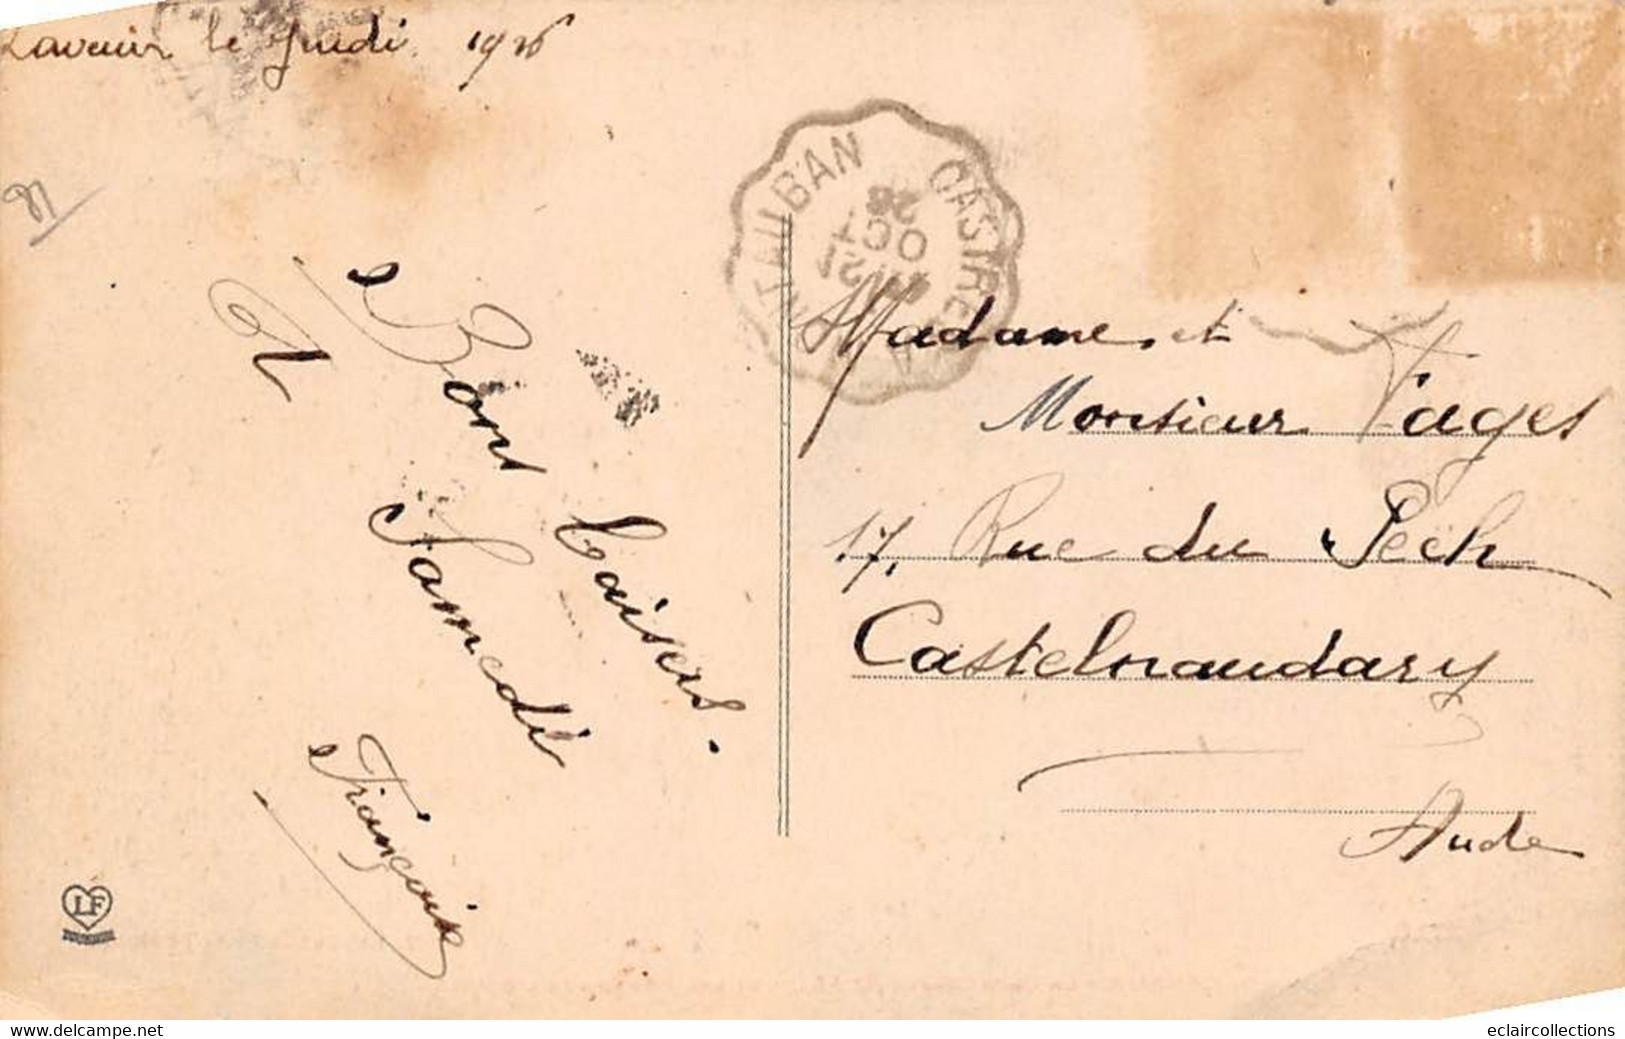 Lavaur le Jeudi 1926
Bons baisers.
A Samedi
Françoise
LF
CASTRES A MONTAUBAN
21
OCT
26
Madame et
Monsieur Fages
17, Rue du Pech
Castelnaudary
Aude
delcampe.net
eclaircollections